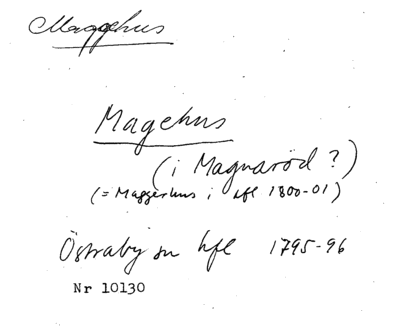 Maggehus
Magehus
(i Magnaröd?)
(= Maggerhus i hfl 1800-01)
Östraby sn hfl 1795-96
Nr 10130